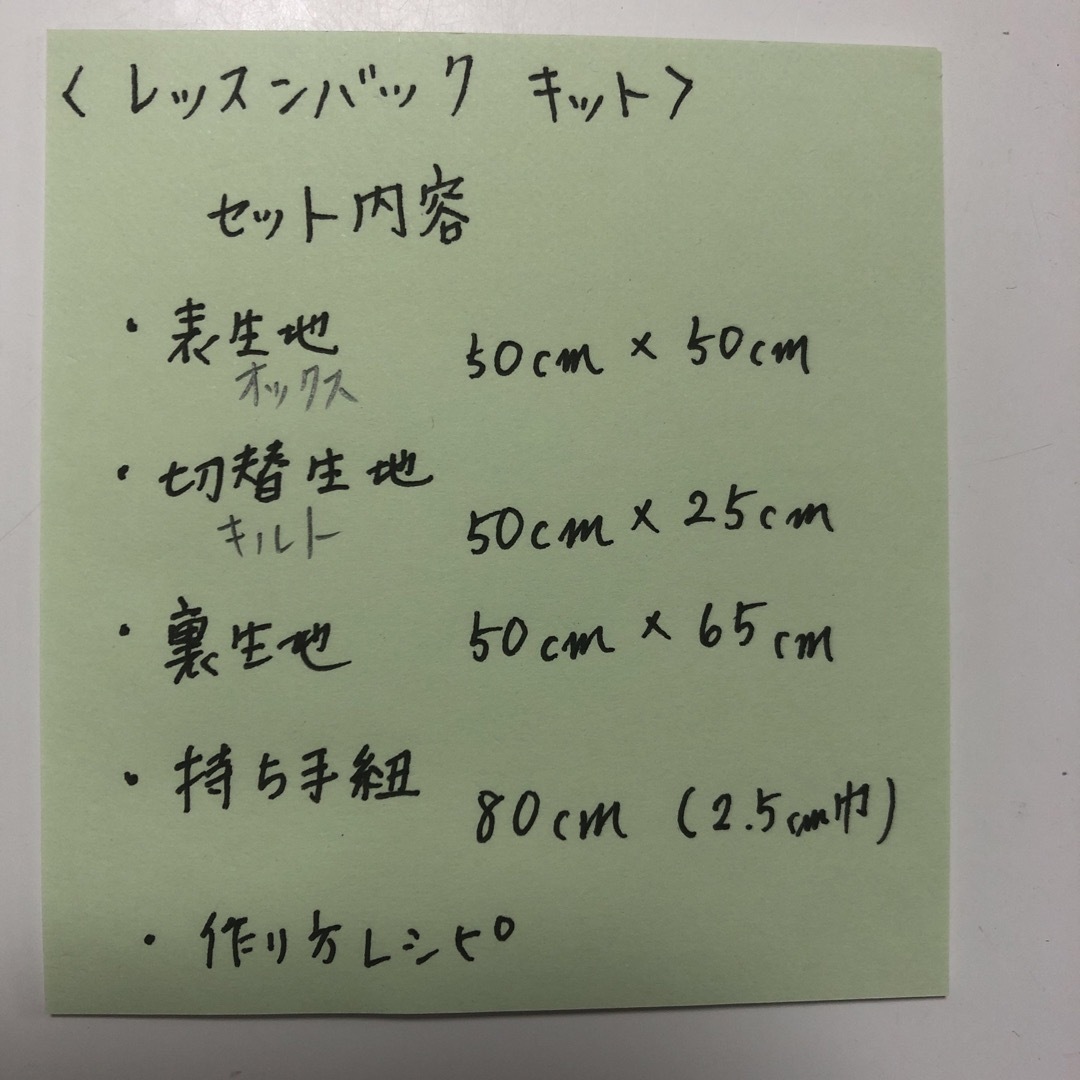 <レッスンバック キット>
セット内容
・表生地 50cm × 50cm
オックス
・切替生地 50cm × 25cm
キルト
・裏生地 50cm × 65cm
・持ち手紐 80cm (2.5cm巾)
・作り方レシピ